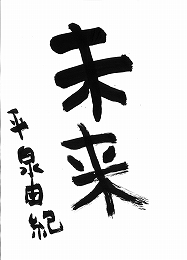 未来
平泉由紀